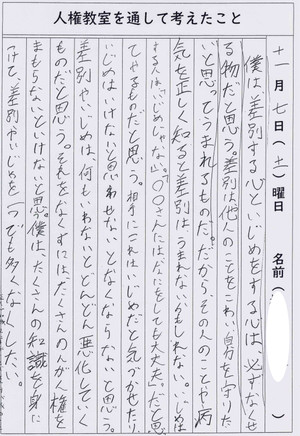 人権教室を通して考えたこと
十一月七日(土)曜日 名前(　　)
僕は、差別する心といじめをする心は、必ずなくせ
る物だと思う。差別は他人のことをこわい、自分を守りた
いと思ってうまれるものだ。だから、その人のことや病
気を正しく知ると差別はうまれないかもしれない。いじめは
する人は「いじめじゃないし」「〇〇さんにはなにをしても大夫夫」だと思っ
てやるものだと思う。相手にこれはいじめだと気づかせたり
いじめはいけないと思わせないとなくならないと思う。
差別やいじめは何もいわないとどんどん悪化していく
ものだと思う。それをなくすにはたくさんの人が人権を
まもらないといけないと思う。僕は、たくさんの知識を身に
つけて、差別やいじめを一つでも多くなくしたい。